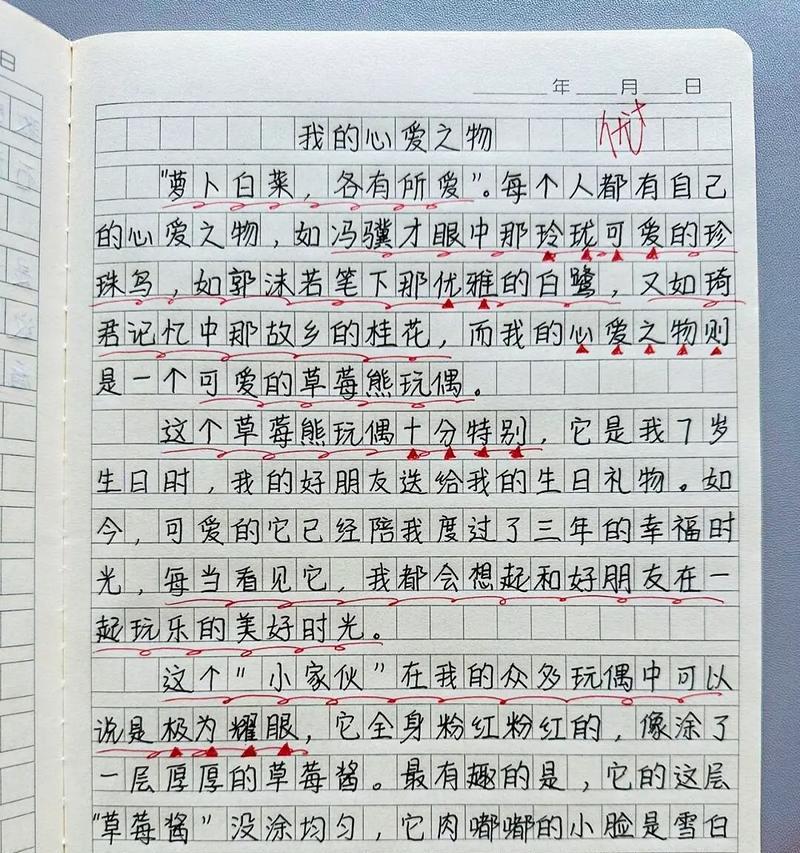 日
年 月 日
我的心爱之物
优+
“萝卜白菜，各有所爱”。每个人都有自己
的心爱之物，如冯骥才眼中那玲珑可爱的珍
珠鸟，如郭沫若笔下那优雅的白鹭，又如琦
君记忆中那故乡的桂花，而我的心爱之物则
是一个可爱的草莓熊玩偶。
这个草莓熊玩偶十分特别，它是我7岁
生日时，我的好朋友送给我的生日礼物。如
今，可爱的它已经陪我度过了三年的幸福时
光，每当看见它，我都会想起和好朋友在一
起玩乐的美好时光。
这个“小家伙”在我的众多玩偶中可以
说是极为耀眼，它全身粉红粉红的，像涂了
一层厚厚的草莓酱。最有趣的是，它的这层
“草莓酱”没涂均匀，它肉嘟嘟的小脸是雪白